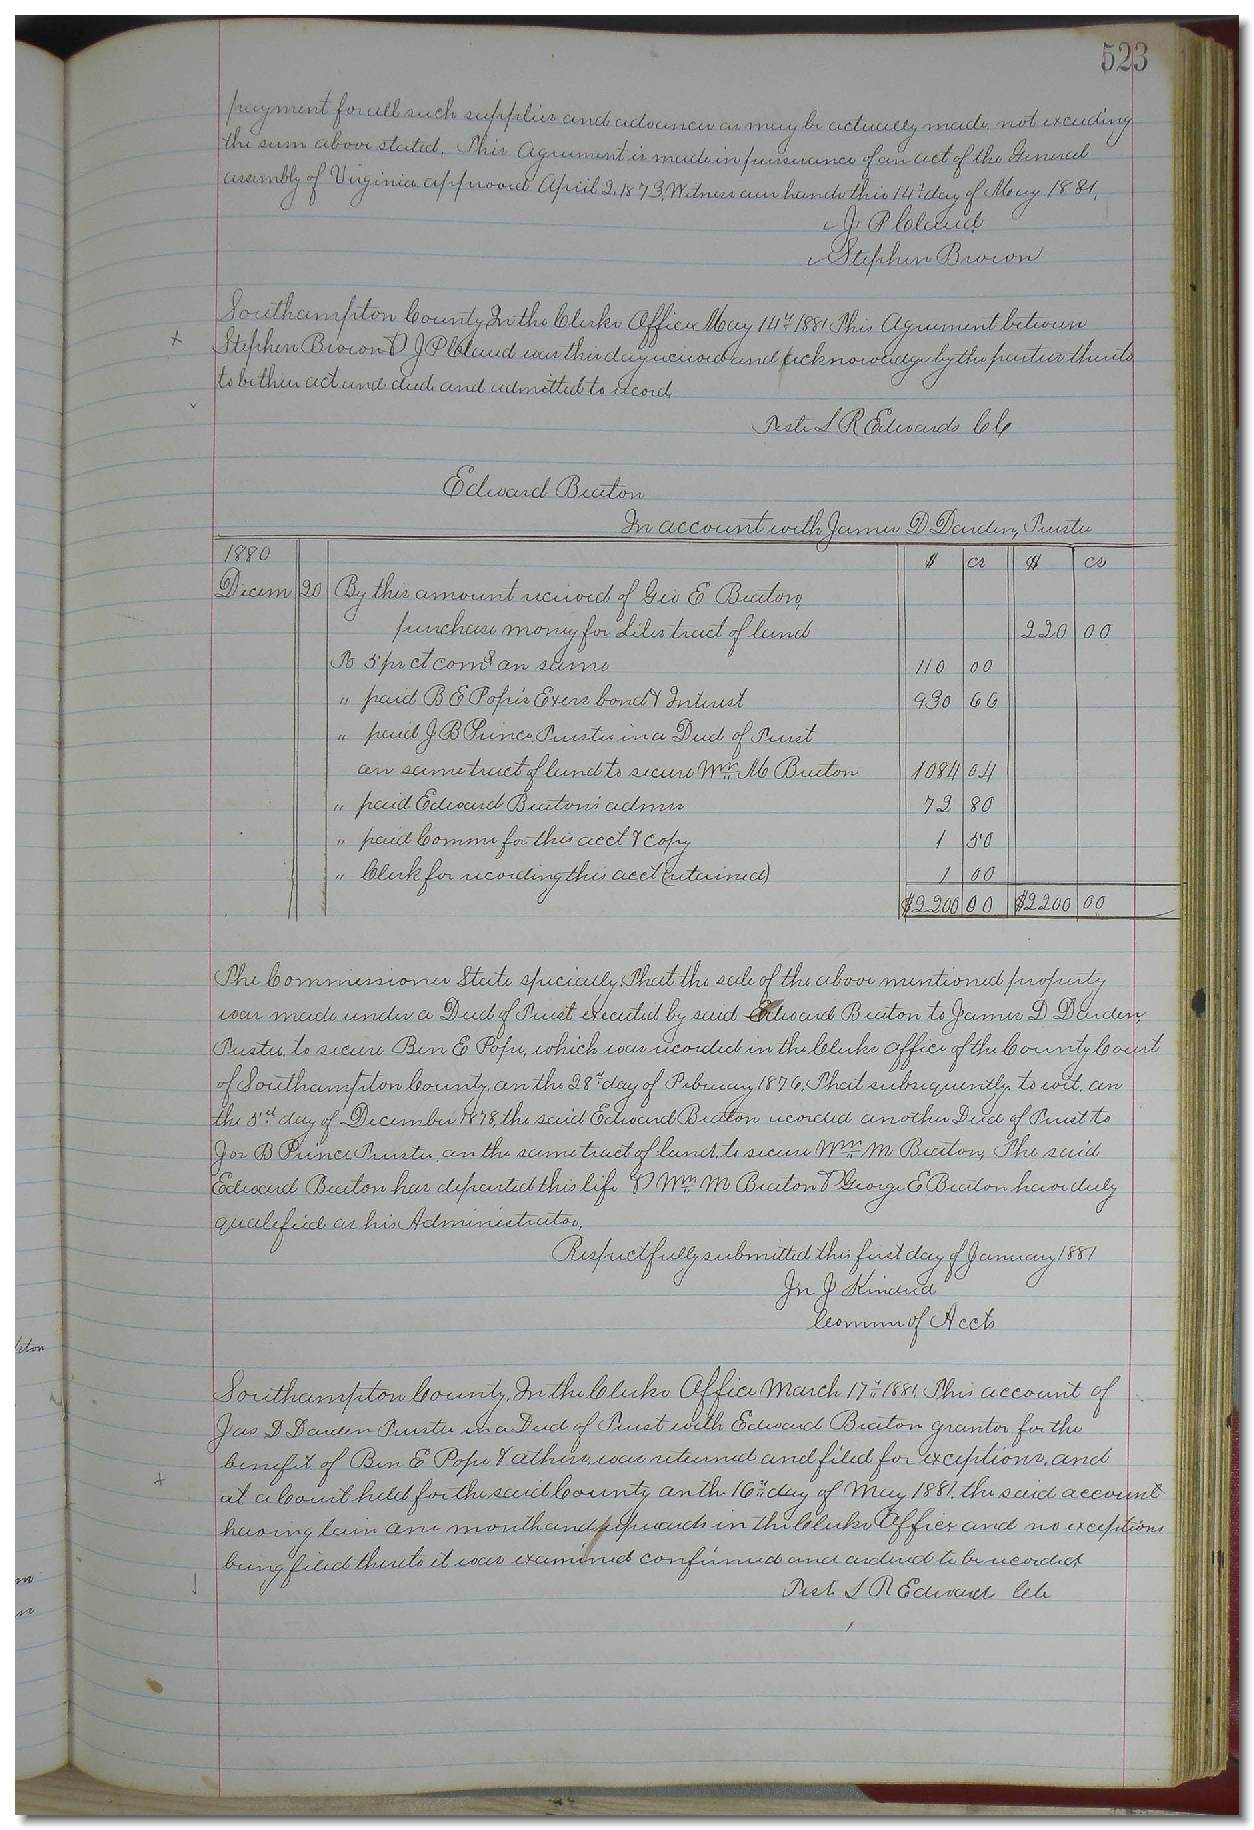 523
payment for all such supplies and advances as may be actually made not exceeding
the sum above stated. This Agreement is made in pursuance of an act of the General
assembly of Virginia approved April 2, 1873, Witness our hands this 14th day of May 1881,
J. P.
Stephen Brown
Southampton County, In the Clerks Office May 14th 1881 This Agreement between
Stephen Brown & J P was this day received and acknowledge by the parties thereto
to be their act and deed and admitted to record,
Teste L R Edwards CC
Edward Beaton
In account with James D Darden, Trustee
1880 $ cs $ cs
Decem 20 By this amount received of Geo E Beaton,
purchase money for tract of land 220 00
To 5 pr ct coms on same 110 00
" paid B E Pope's Exers bond & Interest 930 66
" paid J B Prince Trustee in a Deed of Trust
on same tract of land to secure Wm M Beaton 1084 04
" paid Edward Beaton's admrs 72 80
" paid Commr for this acct & copy 1 50
" Clerk for recording this acct (retained) 1 00
$2200 00 $2200 00
The Commissioner State specially, That the sale of the above mentioned property
was made under a Deed of Trust executed by said Edward Beaton to James D Darden,
Trustee to secure Ben E Pope, which was recorded in the Clerks office of the County Court
of Southampton County, on the 28th day of February 1876, That subsequently to wit, on
the 5rd day of December 1878, the said Edward Beaton recorded another Deed of Trust to
Jos B Prince Trustee, on the same tract of land, to secure Wm M Beaton, The said
Edward Beaton has departed this life & Wm M Beaton & George E Beaton have duly
qualified as his Administrators,
Respectfully submitted this first day of January 1881
Jn J Kindred
Commr of Accts
Southampton County, In the Clerks Office March 17th 1881, This account of
Jas D Darden Trustee in a Deed of Trust with Edward Beaton grantor for the
benefit of Ben E Pope & others, was returned and filed for exceptions, and
at a Court held for the said County on the 16th day of May 1881, the said account
having lain one month and upwards in the Clerks Office and no exceptions
being filed thereto it was examined confirmed and ordered to be recorded
Test L R Edwards CC